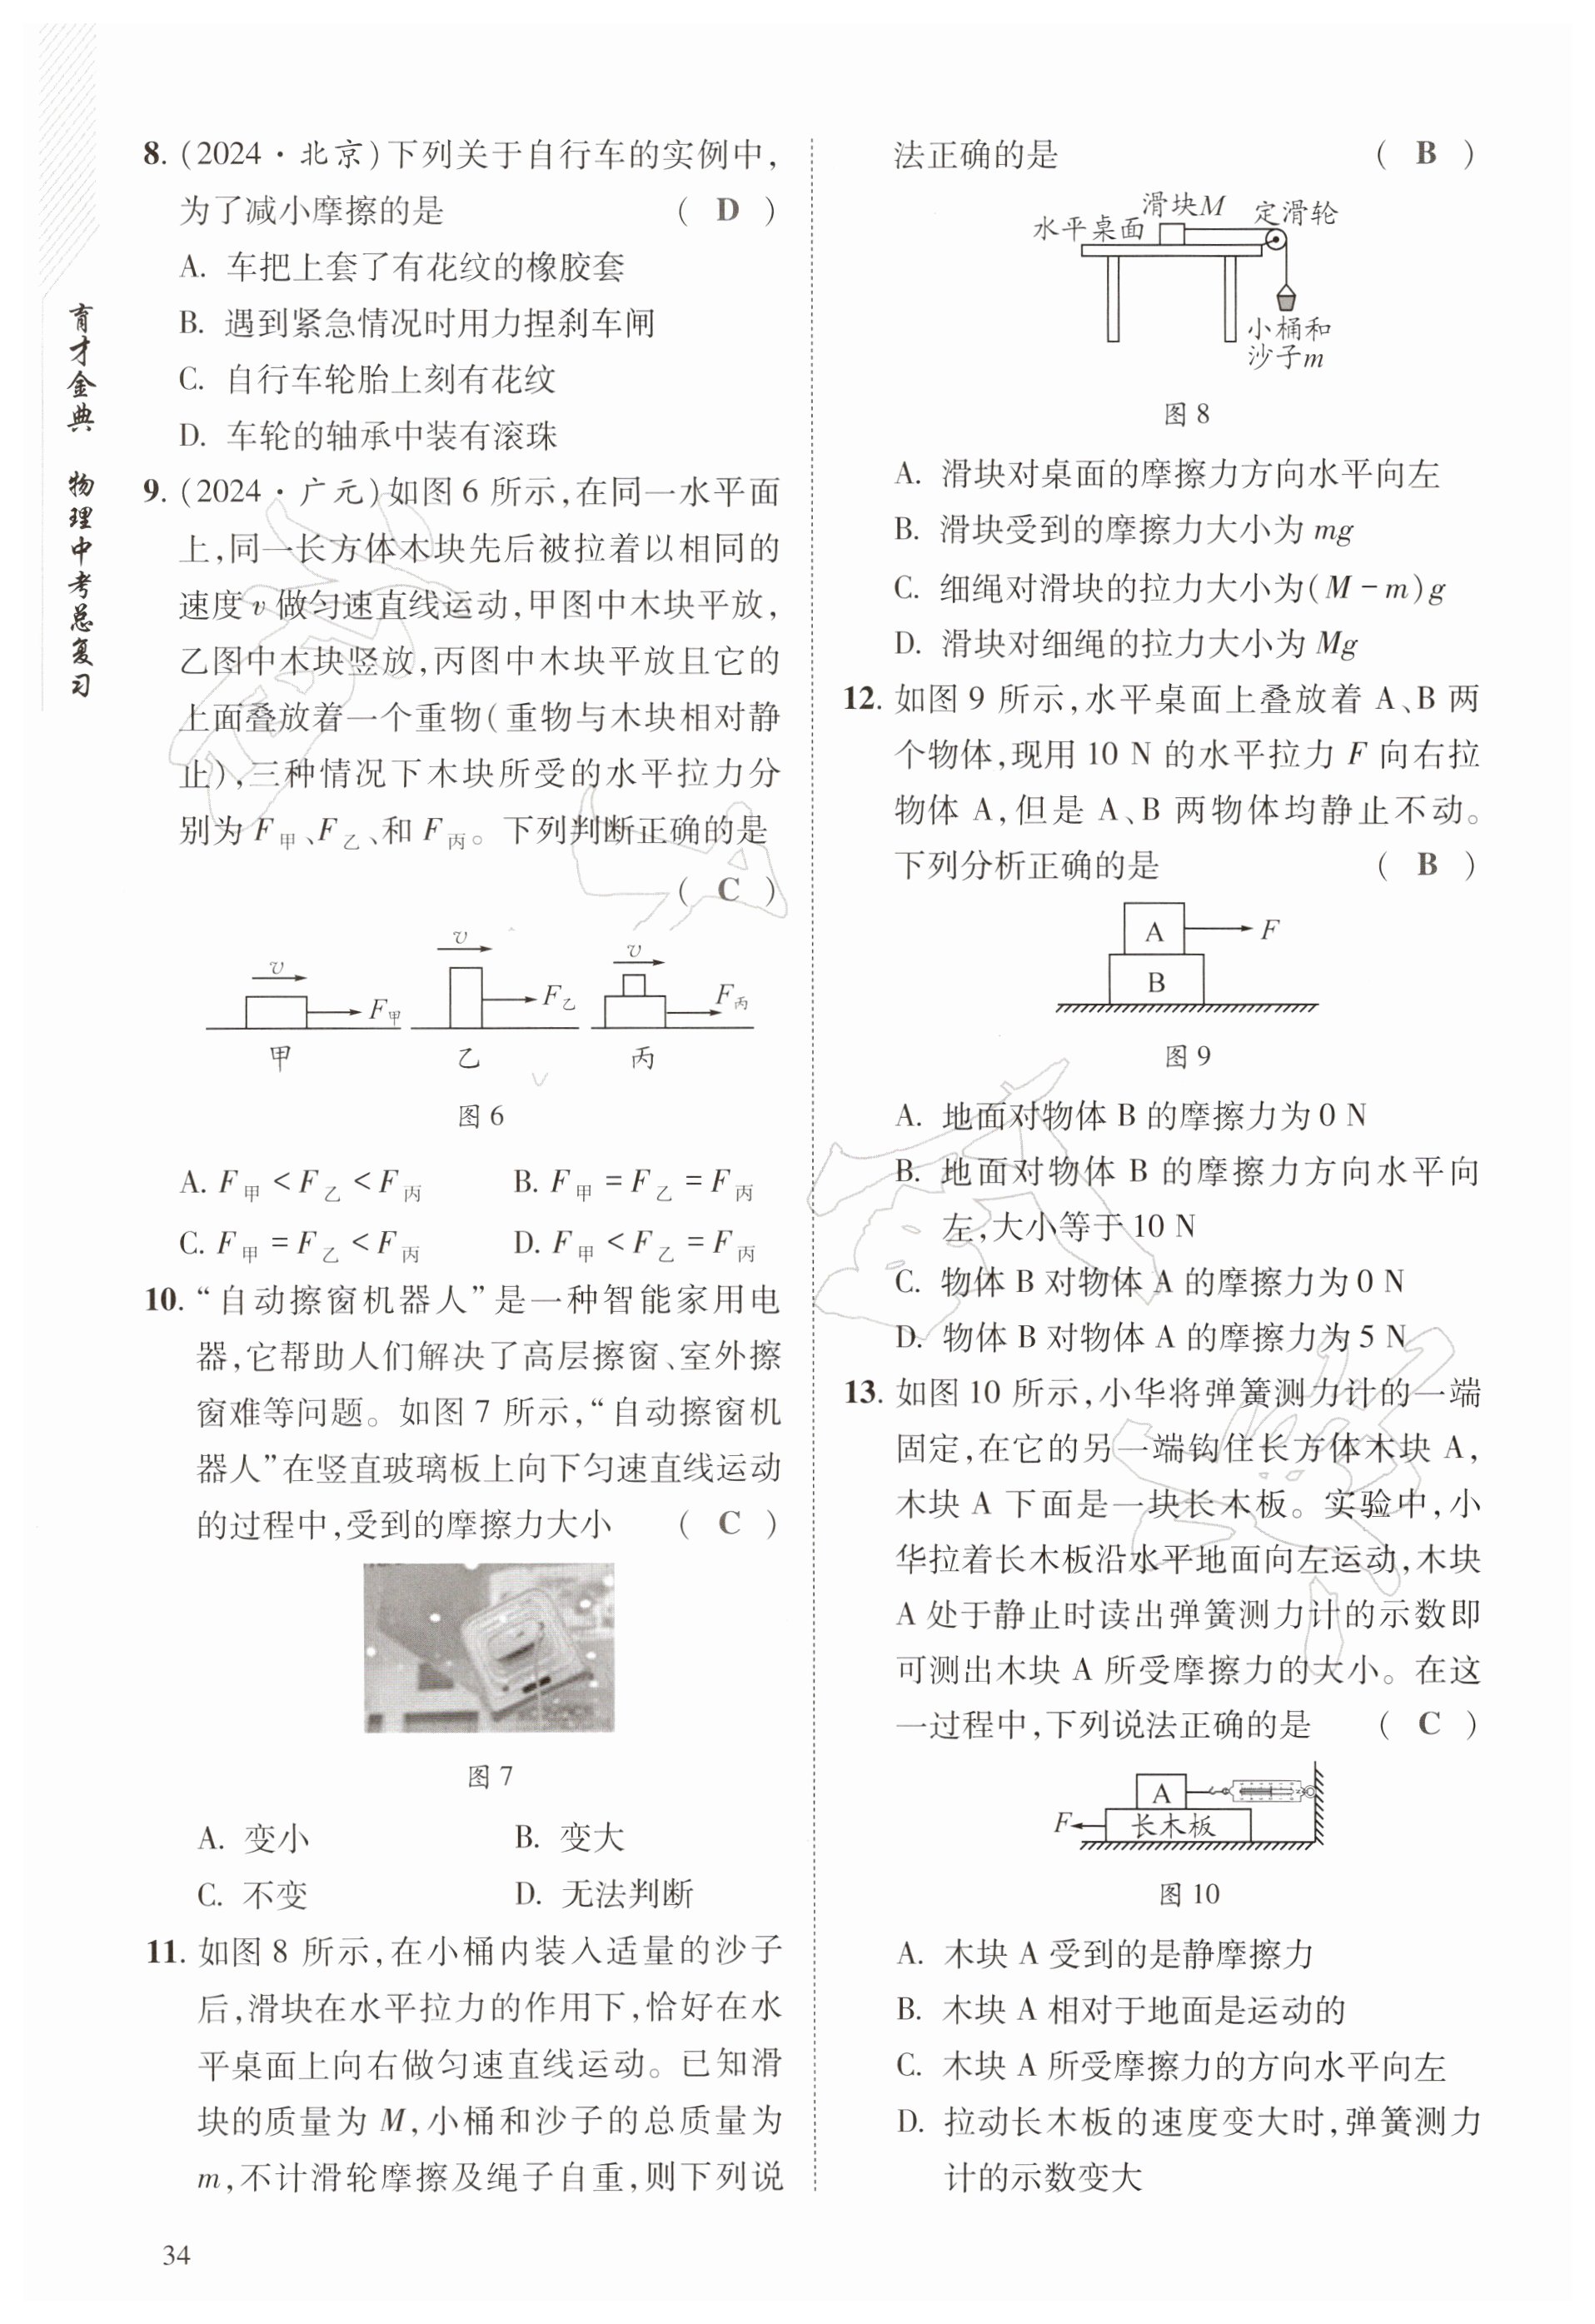 育才金典 物理中考总复习
8. (2024·北京)下列关于自行车的实例中,
为了减小摩擦的是 ( D )
A. 车把上套了有花纹的橡胶套
B. 遇到紧急情况时用力捏刹车闸
C. 自行车轮胎上刻有花纹
D. 车轮的轴承中装有滚珠
9. (2024·广元)如图6所示,在同一水平面
上,同一长方体木块先后被拉着以相同的
速度v做匀速直线运动,甲图中木块平放,
乙图中木块竖放,丙图中木块平放且它的
上面叠放着一个重物(重物与木块相对静
止),三种情况下木块所受的水平拉力分
别为F甲、F乙、和F丙。下列判断正确的是
( C )
v F甲 v F乙 v F丙
甲 乙 丙
图6
A. F甲<F乙<F丙 B. F甲=F乙=F丙
C. F甲=F乙<F丙 D. F甲<F乙=F丙
10. “自动擦窗机器人”是一种智能家用电
器,它帮助人们解决了高层擦窗、室外擦
窗难等问题。如图7所示,“自动擦窗机
器人”在竖直玻璃板上向下匀速直线运动
的过程中,受到的摩擦力大小 ( C )
图7
A. 变小 B. 变大
C. 不变 D. 无法判断
11. 如图8所示,在小桶内装入适量的沙子
后,滑块在水平拉力的作用下,恰好在水
平桌面上向右做匀速直线运动。已知滑
块的质量为M,小桶和沙子的总质量为
m,不计滑轮摩擦及绳子自重,则下列说
34
法正确的是 ( B )
滑块M 定滑轮
水平桌面
小桶和
沙子m
图8
A. 滑块对桌面的摩擦力方向水平向左
B. 滑块受到的摩擦力大小为mg
C. 细绳对滑块的拉力大小为(M-m)g
D. 滑块对细绳的拉力大小为Mg
12. 如图9所示,水平桌面上叠放着A、B两
个物体,现用10 N的水平拉力F向右拉
物体A,但是A、B两物体均静止不动。
下列分析正确的是 ( B )
A F
B
图9
A. 地面对物体B的摩擦力为0 N
B. 地面对物体B的摩擦力方向水平向
左,大小等于10 N
C. 物体B对物体A的摩擦力为0 N
D. 物体B对物体A的摩擦力为5 N
13. 如图10所示,小华将弹簧测力计的一端
固定,在它的另一端钩住长方体木块A,
木块A下面是一块长木板。实验中,小
华拉着长木板沿水平地面向左运动,木块
A处于静止时读出弹簧测力计的示数即
可测出木块A所受摩擦力的大小。在这
一过程中,下列说法正确的是 ( C )
A
F 长木板
图10
A. 木块A受到的是静摩擦力
B. 木块A相对于地面是运动的
C. 木块A所受摩擦力的方向水平向左
D. 拉动长木板的速度变大时,弹簧测力
计的示数变大